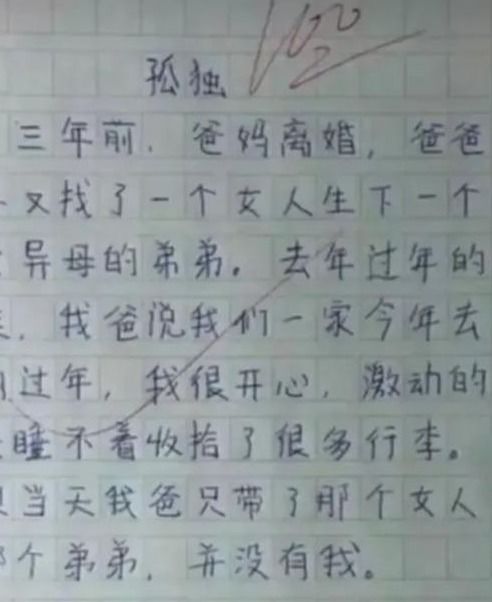 100
孤独
三年前，爸妈离婚，爸爸
又找了一个女人生下一个
异母的弟弟。去年过年的
，我爸说我们一家今年去
过年，我很开心，激动的
睡不着收拾了很多行李。
当天我爸只带了那个女人
个弟弟，并没有我。